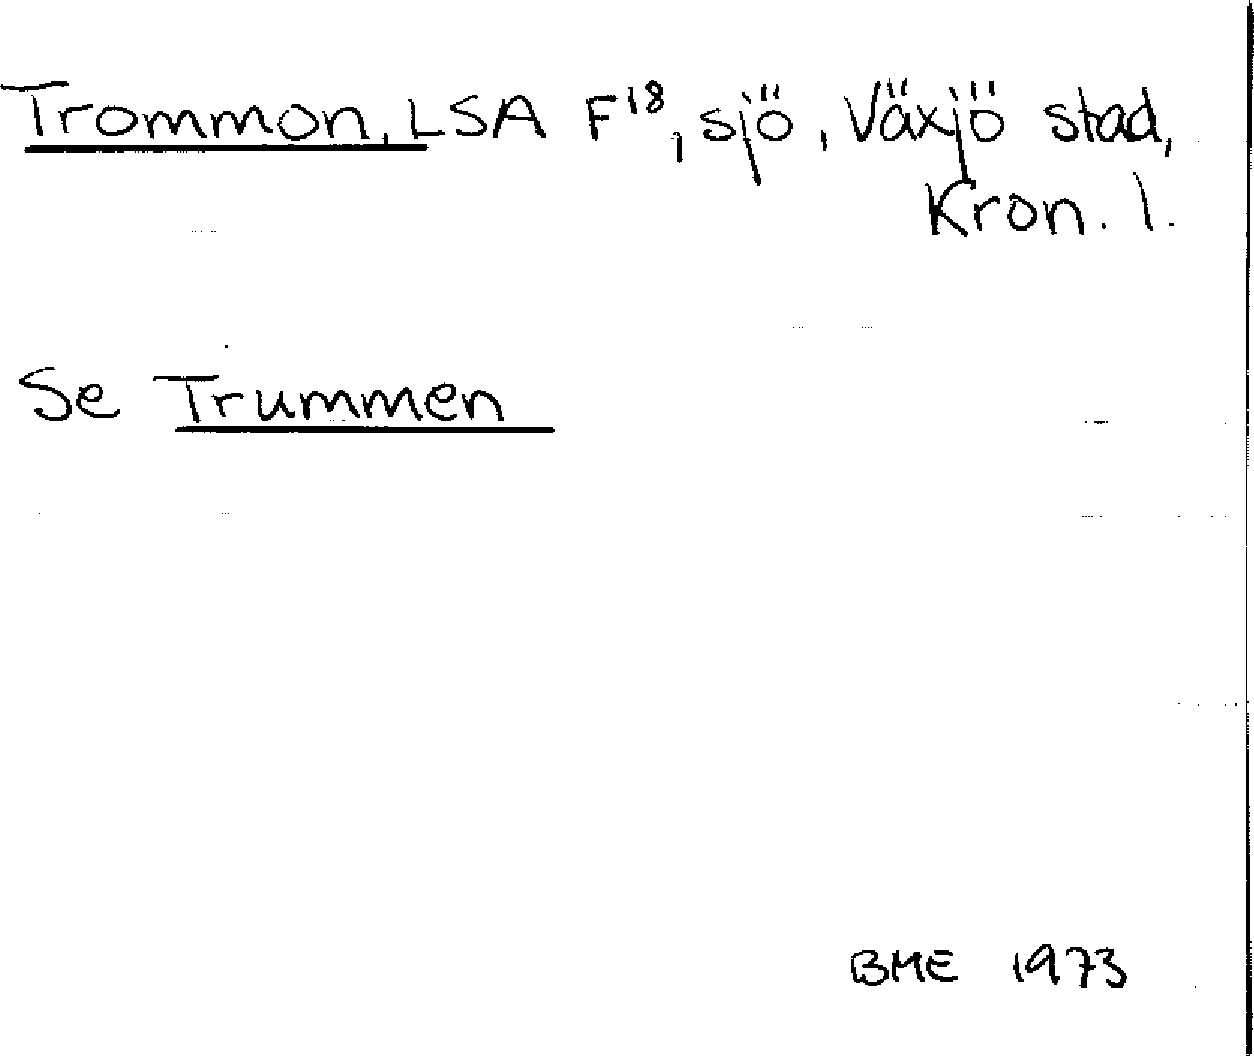 Trommon, LSA F18, sjö, Växjö stad,
Kron. l.
Se Trummen
BME 1973